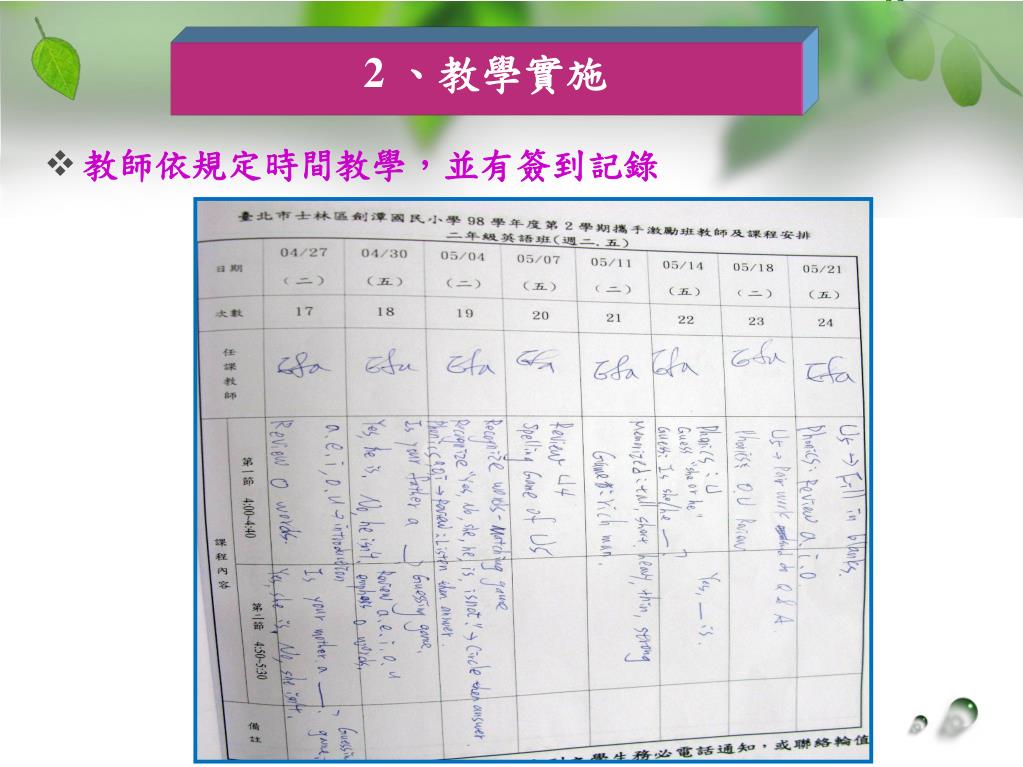 2、教學實施
教師依規定時間教學，並有簽到記錄
臺北市士林區劍潭國民小學 98 學年度第 2 學期攜手激勵班教師及課程安排
二年級英語班(週二.五)
日期 04/27 04/30 05/04 05/07 05/11 05/14 05/18 05/21
(二) (五) (二) (五) (二) (五) (二) (五)
次數 17 18 19 20 21 22 23 24
任課教師 Efa Efa Efa Efa Efa Efa Efa Efa
課程內容
第一節 4:00~4:40
第二節 4:50~5:30
備註
Review O words.
Yes, she is, No, she isn't.
a.e.i.o.u → introduction
Is your mother a ___?
Guessin game.
Yes, he is. No, he isn't. emphasis o words.
Review a.e.i.o.u
Is your father a ___? Guessing game.
Listen then answer.
Recognize "Yes, No, she, he, is, isnot" → Circle then answer
Recognize words - Matching game
Spelling Game of U5
Review U4
Game: rich man.
Memorized: tall, short, heavy, thin, strong
Guess: Is she/he ___? Yes, ___ is.
Guess "she or he"
Phonics: U
Phonics: O.U Review
U5 → Pair work Q & A.
Phonics: Review a.i.o
U5 → Fill in blanks.
學生務必電話通知，或聯絡輪值